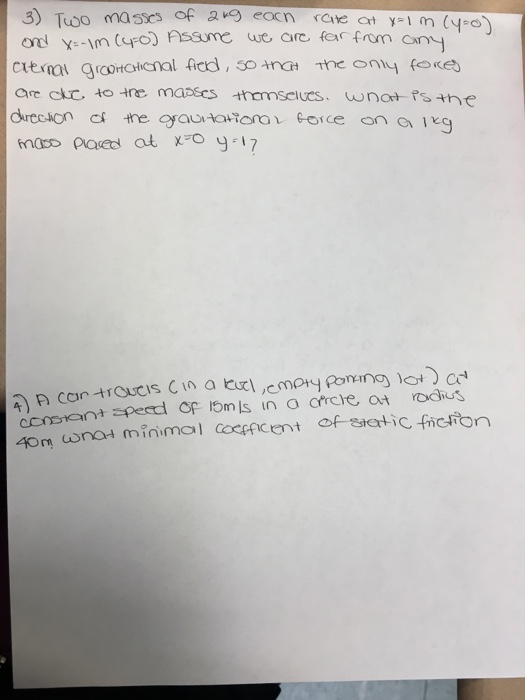 3) Two masses of 2kg each rate at x=1 m (y=0)
and x=-1m (y=0) Assume we are far from any
external gravitational field, so that the only forces
are due to the masses themselves. what is the
direction of the gravitational force on a 1kg
mass placed at x=0 y=1?
4) A car travels (in a level, empty parking lot) at
constant speed of 15m/s in a circle at radius
40m what minimal coefficent of static friction